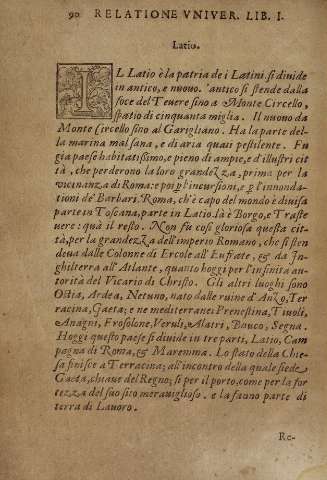 90 RELATIONE VNIVER. LIB. I.
Latio.
IL Latio è la patria de i Latini. si diuide
in antico, e nuouo. l'antico si stende dalla
foce del Teuere sino a Monte Circello,
spatio di cinquanta miglia. Il nuouo da
Monte Circello sino al Garigliano. Ha la parte del-
la marina mal sana, e di aria quasi pestilente. Fu
gia paese habitatissimo, e pieno di ampie, e d'illustri cit
tà, che perderono la loro grandezza, prima per la
vicinanza di Roma: e poi ꝑ l'incursioni, e ꝑ l'innonda-
tioni de' Barbari. Roma, ch'è capo del mondo è diuisa
parte in Toscana, parte in Latio. là è Borgo, e Traste
uere: quà il resto. Non fu così gloriosa questa cit-
tà, per la grandezza dell'imperio Romano, che si sten
deua dalle Colonne di Ercole all'Eufrate, & da In-
ghilterra all'Atlante, quanto hoggi per l'infinita au-
torità del Vicario di Christo. Gli altri luoghi sono
Ostia, Ardea, Netuno, nato dalle ruine d'Anzo, Ter
racina, Gaeta; e ne mediterranei Prenestina, Tiuoli,
Anagni, Frosolone, Veruli, Alatri, Bauco, Segna.
Hoggi questo paese si diuide in tre parti, Latio, Cam
pagna di Roma, & Maremma. Lo stato della Chie-
sa finisce a Terracina; all'incontro della quale siede
Gaeta, chiaue del Regno; si per il porto, come per la for
tezza del suo sito merauiglioso. e la fanno parte di
terra di Lauoro.
Re-